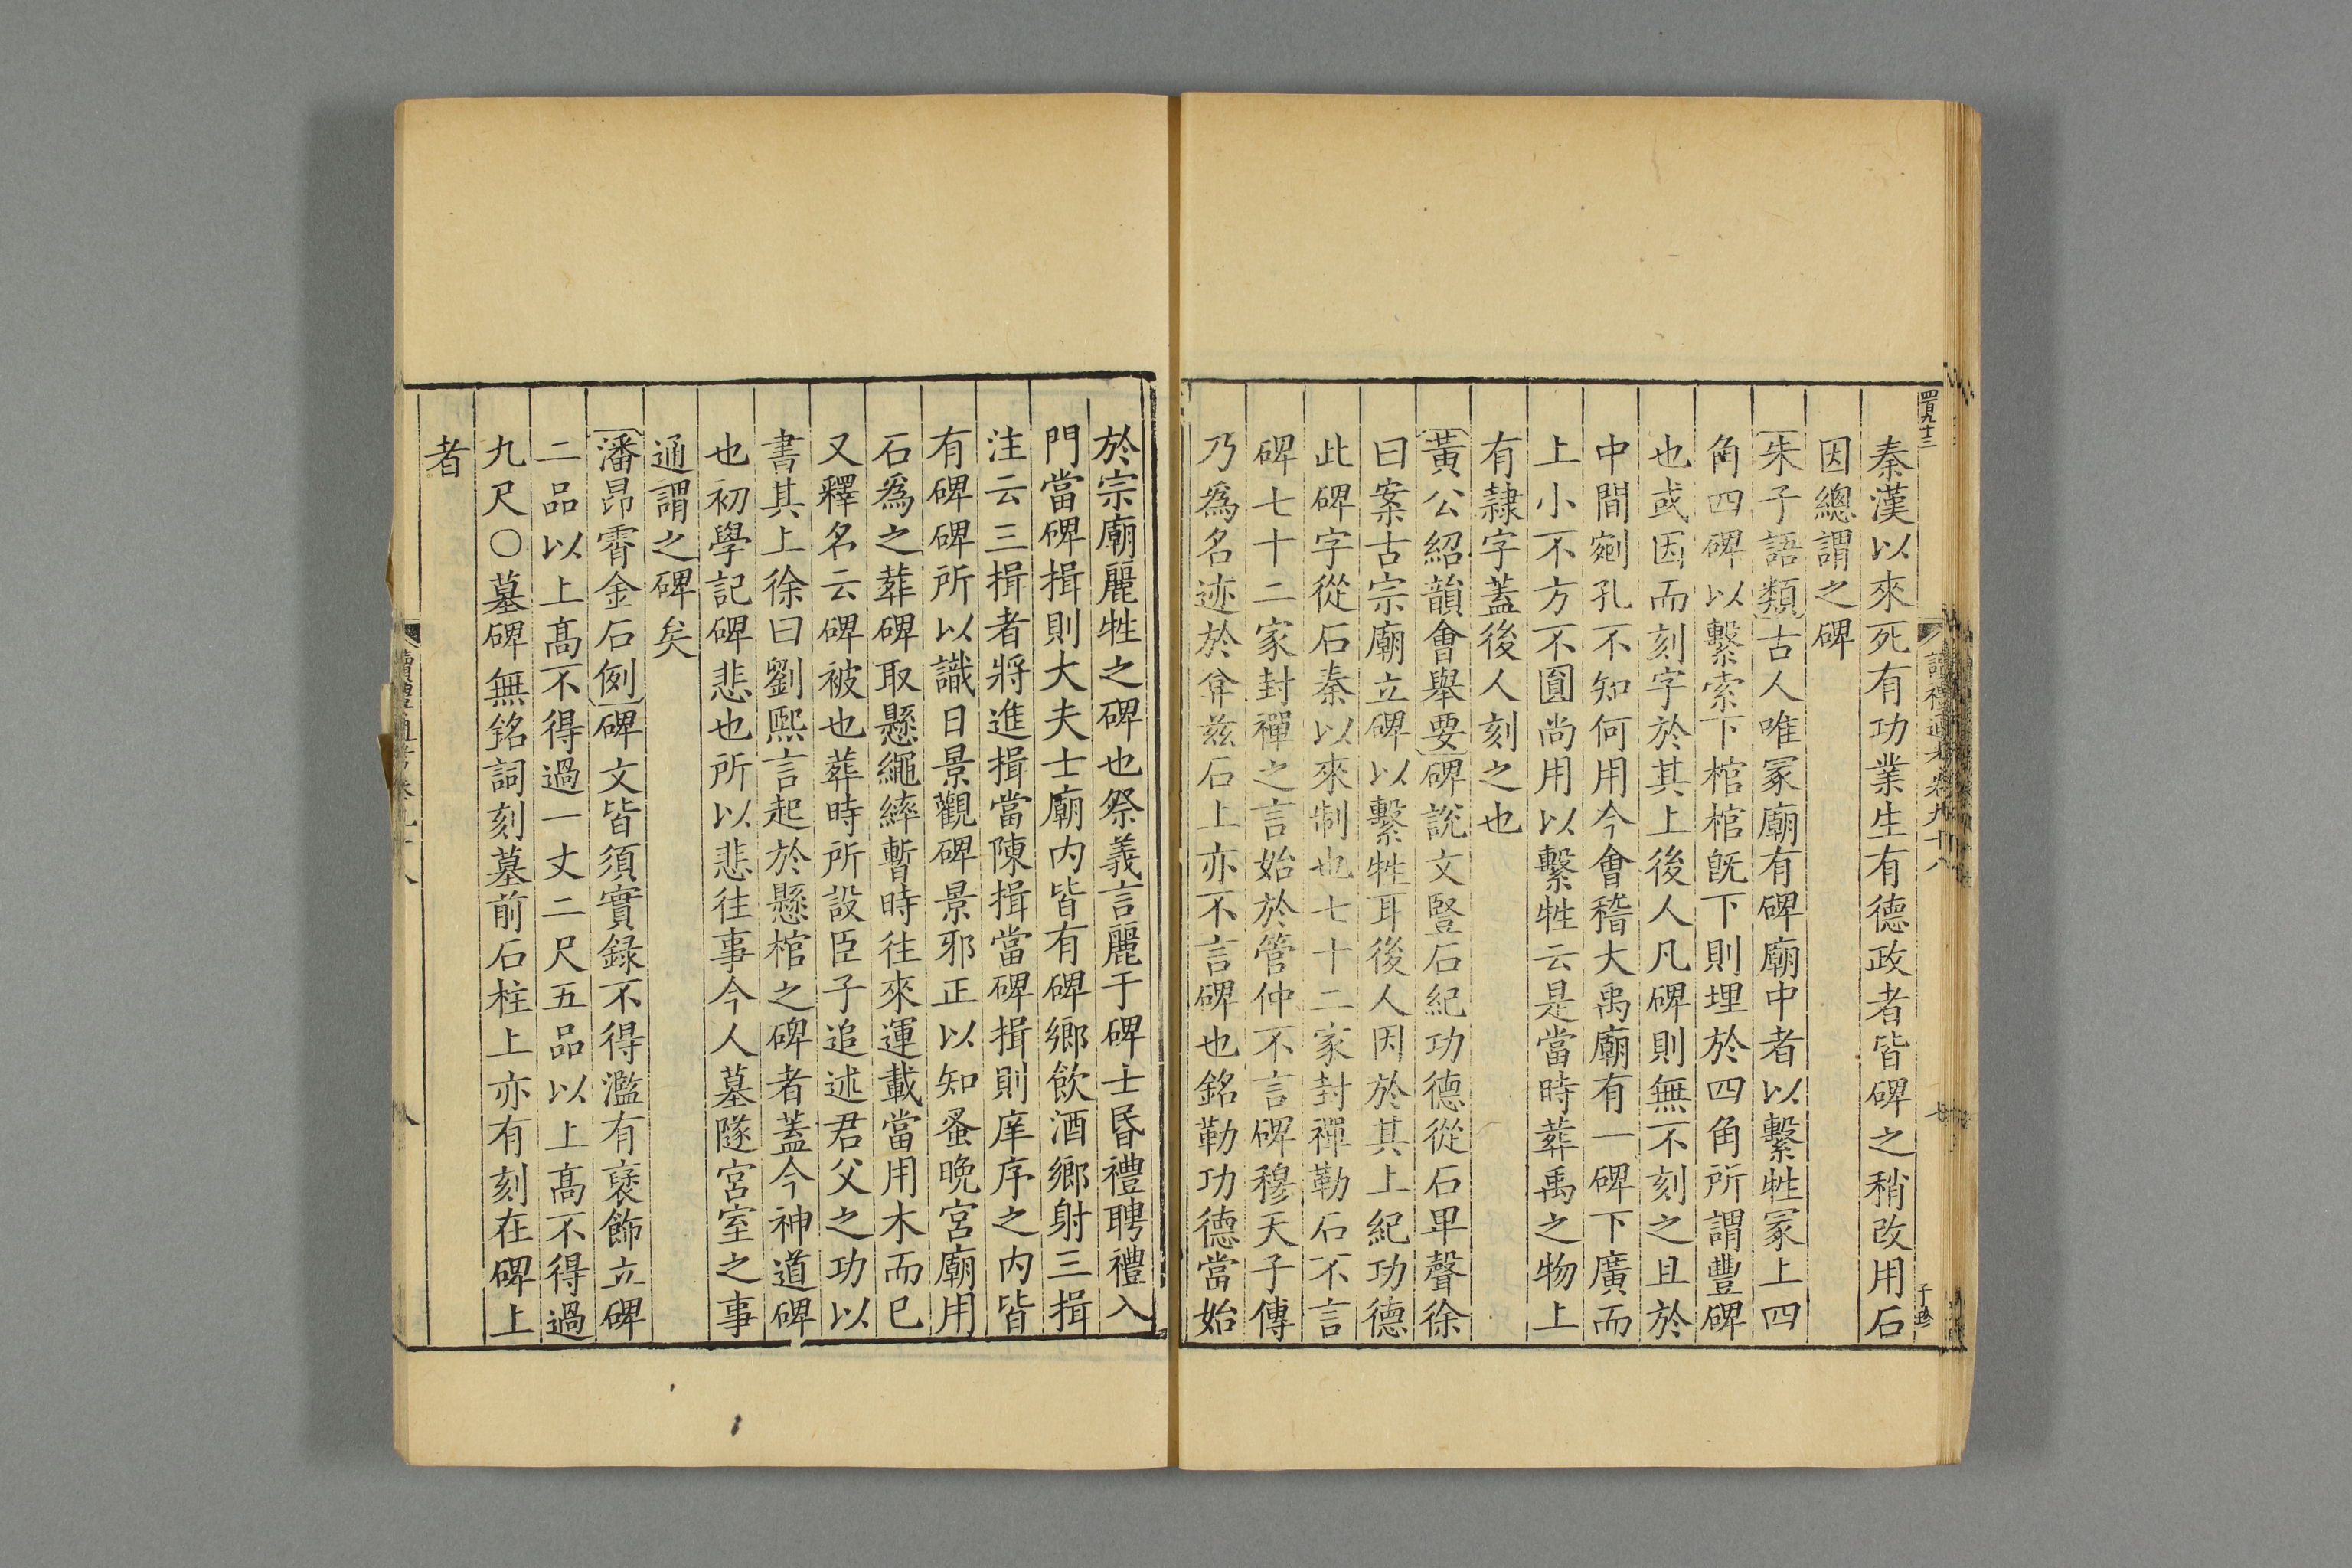 四百九十三
讀禮通考卷九十八
七
秦漢以來死有功業生有德政者皆碑之稍改用石
因總謂之碑
朱子語類古人唯冢廟有碑廟中者以繫牲冢上四
角四碑以繫索下棺棺旣下則埋於四角所謂豐碑
也或因而刻字於其上後人凡碑則無不刻之且於
中間剜孔不知何用今會稽大禹廟有一碑下廣而
上小不方不圓尚用以繫牲云是當時葬禹之物上
有隸字蓋後人刻之也
黃公紹韻會舉要碑說文豎石紀功德從石𤰞聲徐
曰案古宗廟立碑以繫牲耳後人因於其上紀功德
此碑字從石秦以來制也七十二家封禪勒石不言
碑七十二家封禪之言始於管仲不言碑穆天子傳
乃爲名迹於弇茲石上亦不言碑也銘勒功德當始
於宗廟麗牲之碑也祭義言麗于碑士昏禮聘禮入
門當碑揖則大夫士廟內皆有碑鄉飲酒鄉射三揖
注云三揖者將進揖當陳揖當碑揖則庠序之內皆
有碑碑所以識日景觀碑景邪正以知蚤晚宮廟用
石爲之葬碑取懸繩繂暫時往來運載當用木而已
又釋名云碑被也葬時所設臣子追述君父之功以
書其上徐曰劉熙言起於懸棺之碑者蓋今神道碑
也初學記碑悲也所以悲往事今人墓隧宮室之事
通謂之碑矣
潘昂霄金石例碑文皆須實録不得濫有襃飾立碑
二品以上髙不得過一丈二尺五品以上髙不得過
九尺○墓碑無銘詞刻墓前石柱上亦有刻在碑上
者
讀禮通考卷九十八
八